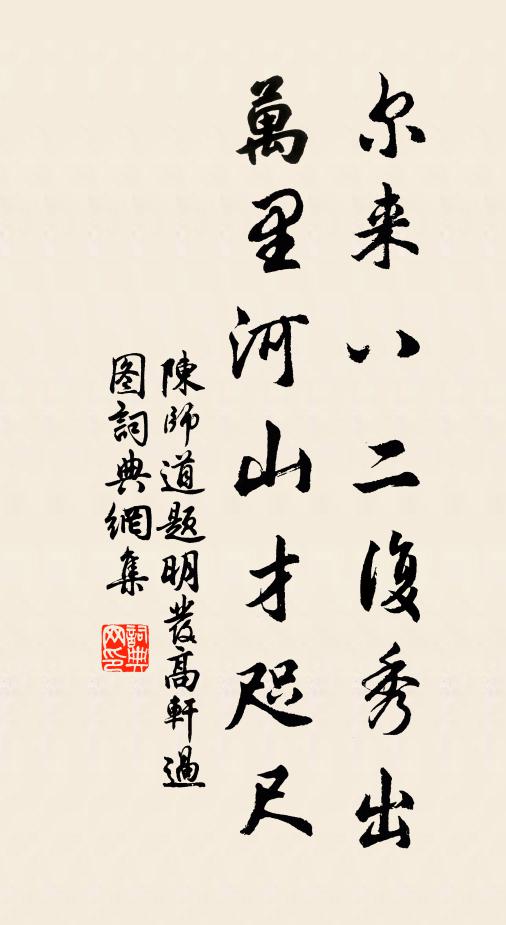 尔来八二復秀出
萬里河山才咫尺
陳師道題明發高軒過
图詞典網集
詞典网印